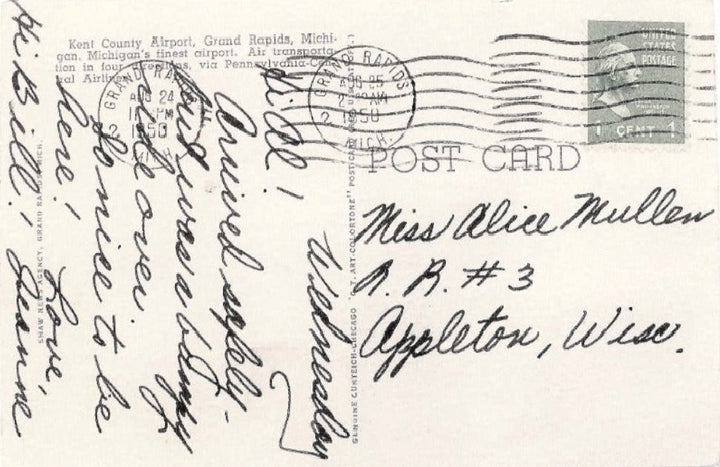 Kent County Airport, Grand Rapids, Michi-
gan, Michigan's finest airport. Air transporta-
tion in four directions, via Pennsylvania-Cen-
tral Airlines.
GRAND RAPIDS
AUG 24
PM
2 1950
MICH.
GRAND RAPIDS
AUG 25
AM
2 1950
MICH.
UNITED
STATES
POSTAGE
1 CENT 1
POST CARD
Wednesday
Hi Al!
Arrived safely-
but was a bumpy
ride over.
So nice to be
here! Love,
Jeanne
Hi Bill!
Miss Alice Mullen
R. R. #3
Appleton, Wisc.
SHAW NEWS AGENCY, GRAND RAPIDS, MICH.
GENUINE CURTEICH-CHICAGO "C.T. ART-COLORTONE" POST CARD